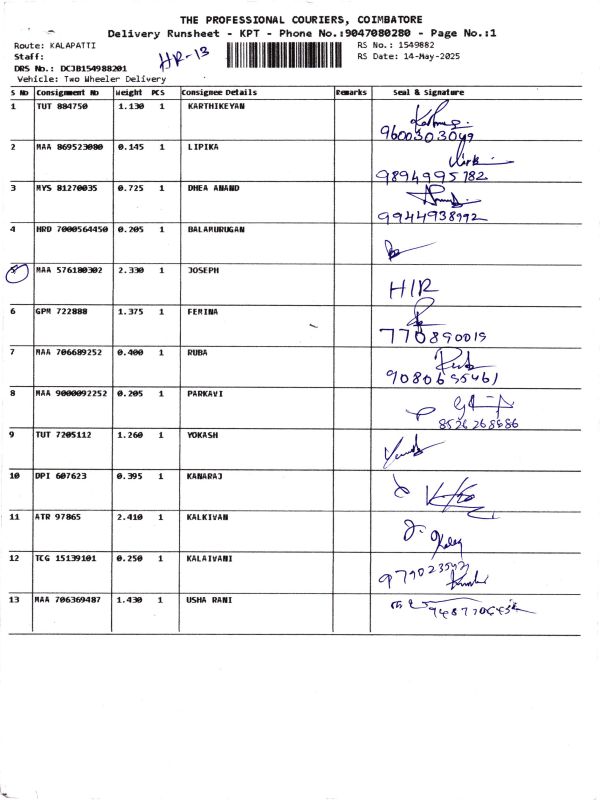 THE PROFESSIONAL COURIERS, COIMBATORE
Delivery Runsheet - KPT - Phone No.:9047080280 - Page No.:1
Route: KALAPATTI HR-13 RS No.: 1549882
Staff: RS Date: 14-May-2025
DRS No.: DCJB154988201
Vehicle: Two Wheeler Delivery
S No Consignment No Weight PCS Consignee Details Remarks Seal & Signature
1 TUT 884750 1.130 1 KARTHIKEYAN
9600303049
2 MAA 869523080 0.145 1 LIPIKA
9894995782
3 MYS 81270035 0.725 1 DHEA ANAND
9944938992
4 HRD 7000564450 0.205 1 BALAMURUGAN
5 MAA 576180302 2.330 1 JOSEPH
H/R
6 GPM 722888 1.375 1 FEMINA
770890019
7 MAA 706689252 0.400 1 RUBA
9080655461
8 MAA 9000092252 0.205 1 PARKAVI
8526268686
9 TUT 7205112 1.260 1 YOKASH
10 DPI 607623 0.395 1 KANARAJ
11 ATR 97865 2.410 1 KALKIVAN
12 TCG 15139101 0.250 1 KALAIVANI
13 MAA 706369487 1.430 1 USHA RANI